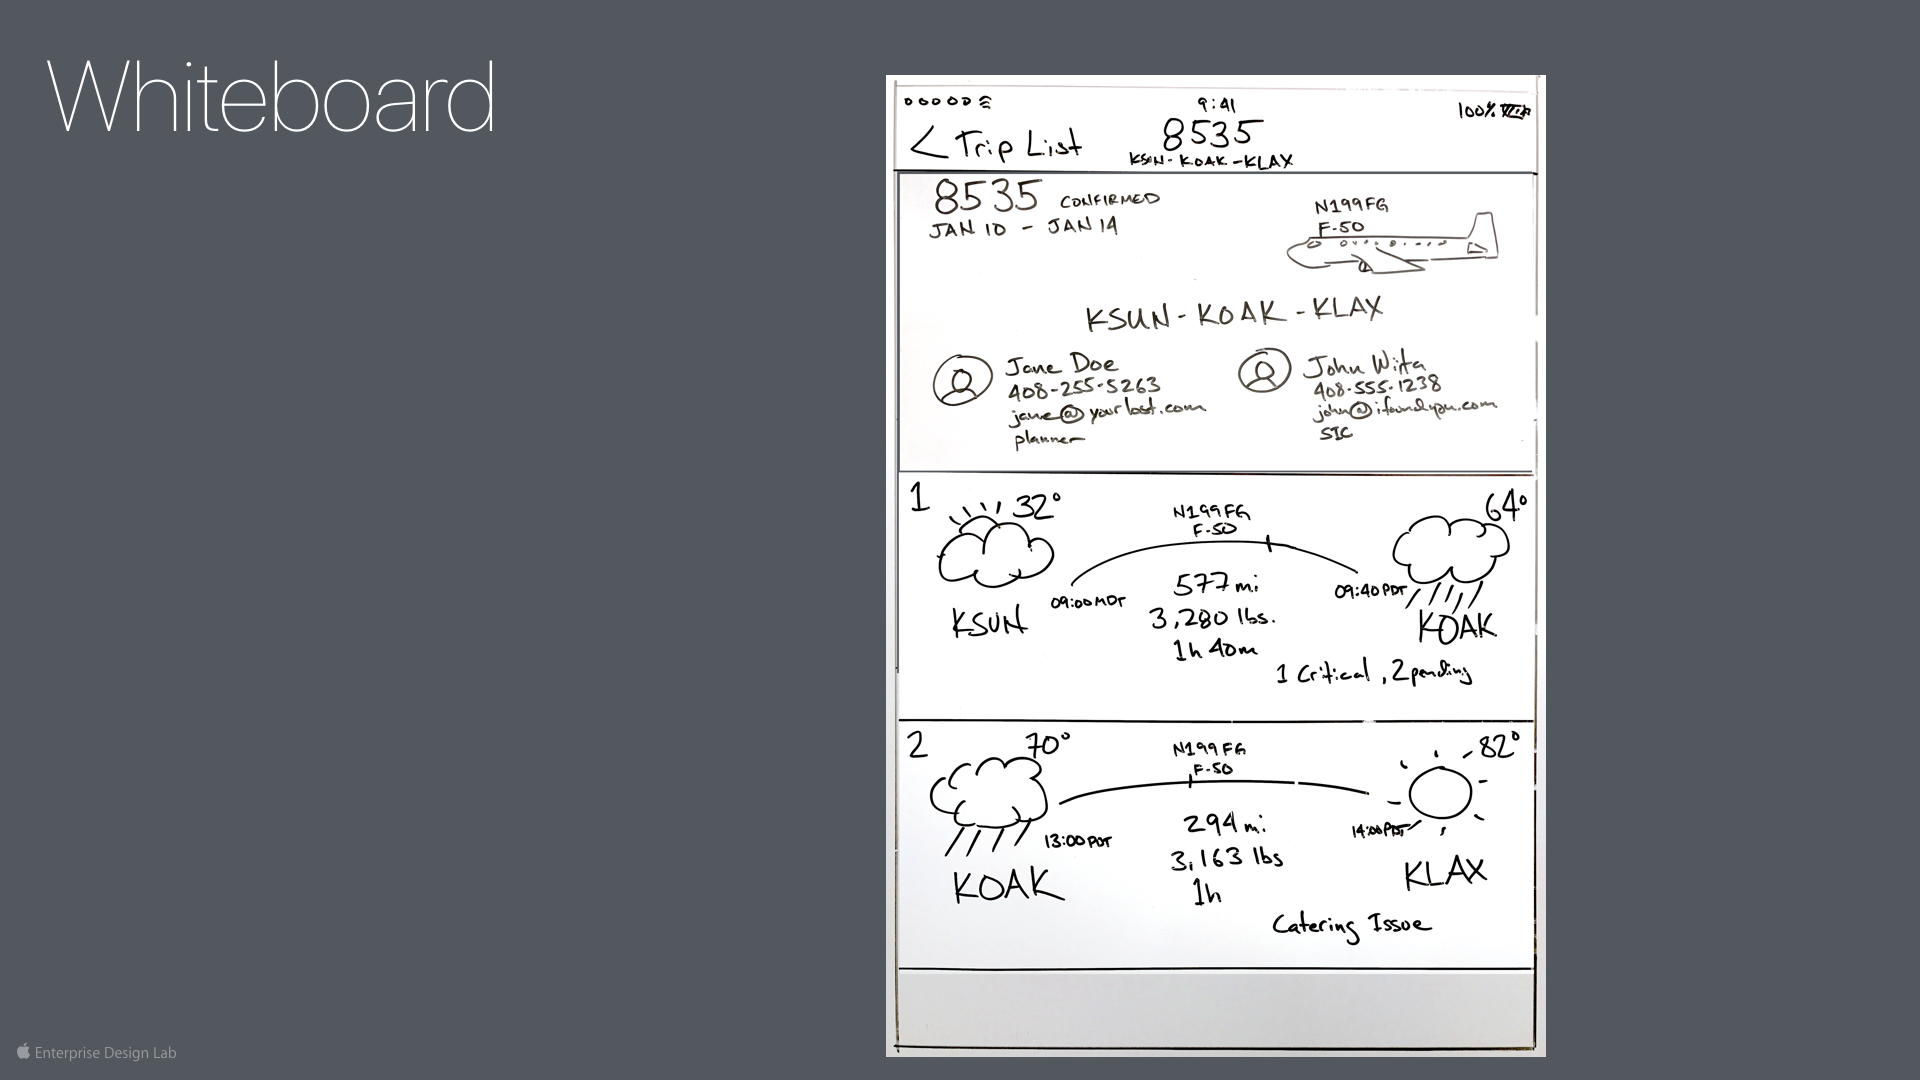 Whiteboard
9:41
100%
< Trip List
8535
KSUN - KOAK - KLAX
8535 CONFIRMED
JAN 10 - JAN 14
N199FG
F-50
KSUN - KOAK - KLAX
Jane Doe
408-255-5263
jane@yourlost.com
planner
John Wirta
408-555-1238
john@ifoundyou.com
SIC
1
32°
N199FG
F-50
64°
09:00 MDT
577 mi
3,280 lbs.
1h 40m
09:40 PDT
KSUN
KOAK
1 Critical, 2 pending
2
70°
N199FG
F-50
82°
13:00 PDT
294 mi
3,163 lbs
1h
14:00 PDT
KOAK
KLAX
Catering Issue
Enterprise Design Lab